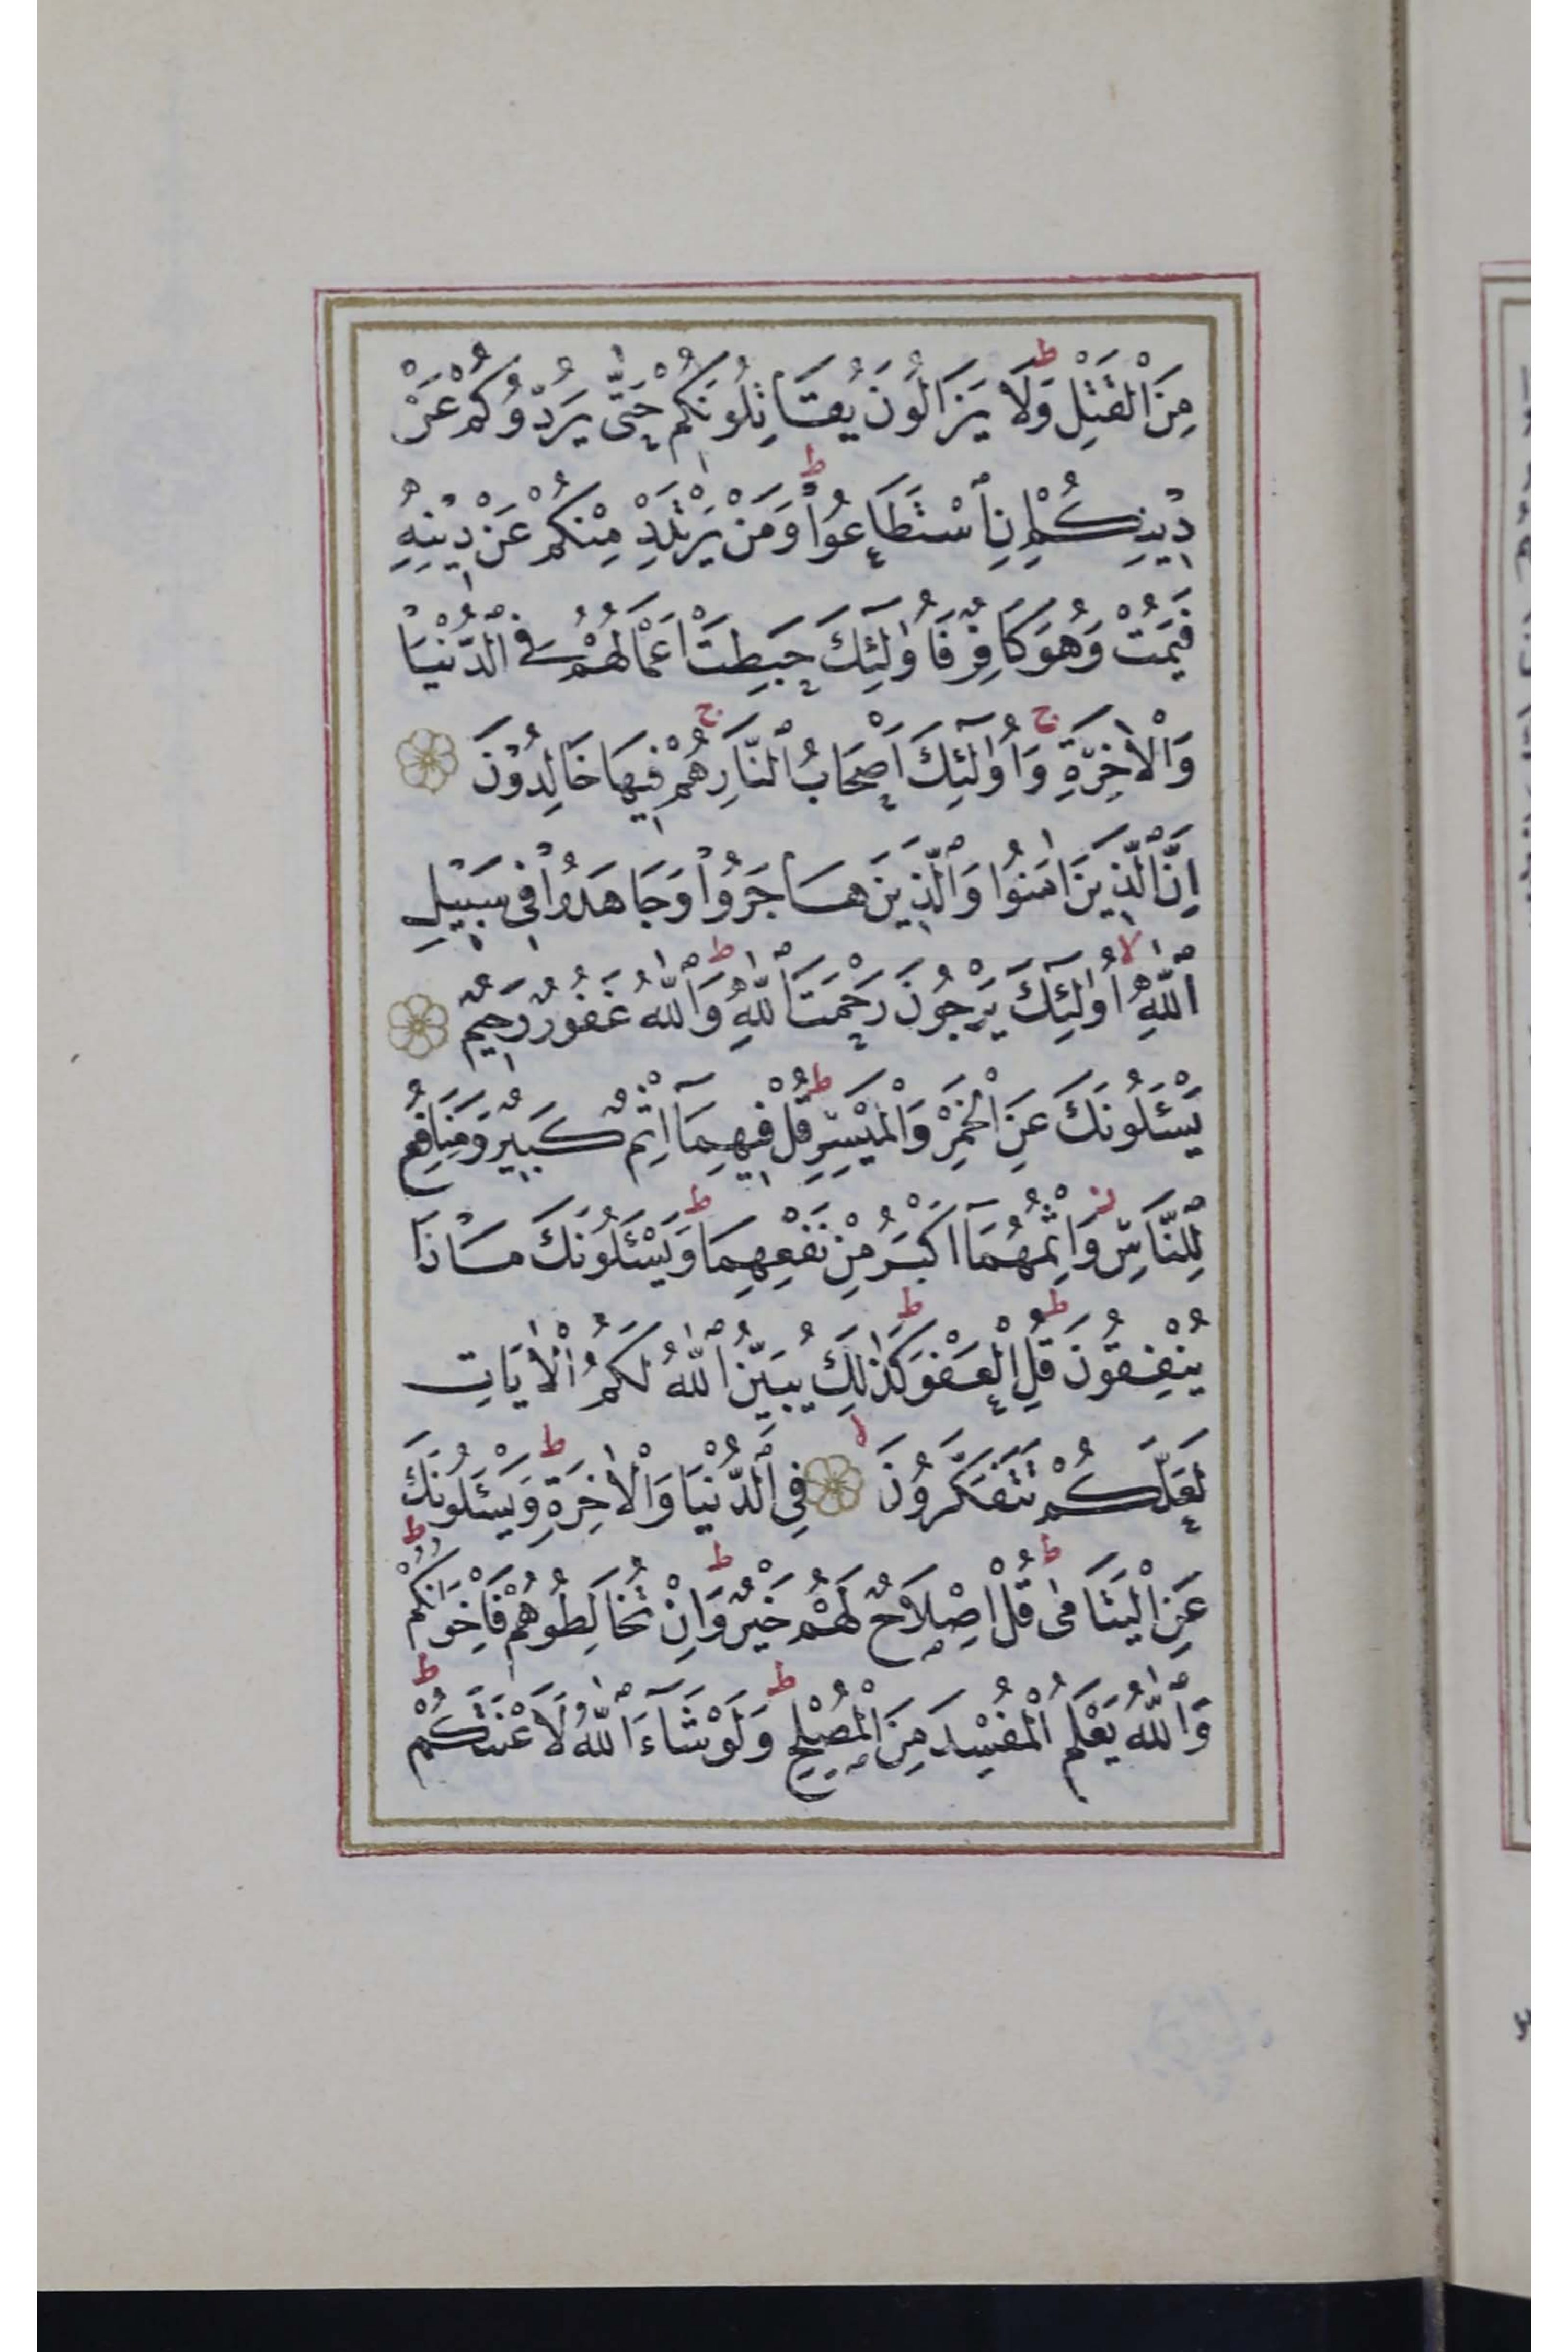 مِنَ الْقَتْلِ ۜ وَلَا يَزَالُونَ يُقَاتِلُونَكُمْ حَتّٰى يَرُدُّوكُمْ عَنْ
دِينِكُمْ اِنِ ٱسْتَطَاعُوا ط وَمَنْ يَرْتَدِدْ مِنْكُمْ عَنْ دِينِهِ
فَيَمُتْ وَهُوَ كَافِرٌ فَاُولٰئِكَ حَبِطَتْ اَعْمَالُهُمْ فِي ٱلدُّنْيَا
وَالْاٰخِرَةِ ج وَاُولٰٓئِكَ اَصْحَابُ ٱلنَّارِ ج هُمْ فِيهَا خَالِدُونَ
اِنَّ ٱلَّذِينَ اٰمَنُوا وَٱلَّذِينَ هَاجَرُوا وَجَاهَدُوا فِي سَبِيلِ
ٱللّٰهِ لا اُولٰٓئِكَ يَرْجُونَ رَحْمَتَ ٱللّٰهِ ط وَٱللّٰهُ غَفُورٌ رَحِيمٌ
يَسْئَلُونَكَ عَنِ الْخَمْرِ وَالْمَيْسِرِ ط قُلْ فِيهِمَآ اِثْمٌ كَبِيرٌ وَمَنَافِعُ
لِلنَّاسِ ز وَاِثْمُهُمَآ اَكْبَرُ مِنْ نَفْعِهِمَا ط وَيَسْئَلُونَكَ مَاذَا
يُنْفِقُونَ ط قُلِ الْعَفْوَ ط كَذٰلِكَ يُبَيِّنُ ٱللّٰهُ لَكُمُ الْاٰيَاتِ
لَعَلَّكُمْ تَتَفَكَّرُونَ لا فِي ٱلدُّنْيَا وَالْاٰخِرَةِ ط وَيَسْئَلُونَكَ
عَنِ الْيَتَامٰى ط قُلْ اِصْلَاحٌ لَهُمْ خَيْرٌ ط وَاِنْ تُخَالِطُوهُمْ فَاِخْوَانُكُمْ ط
وَٱللّٰهُ يَعْلَمُ الْمُفْسِدَ مِنَ الْمُصْلِحِ ط وَلَوْ شَآءَ ٱللّٰهُ لَاَعْنَتَكُمْ ط